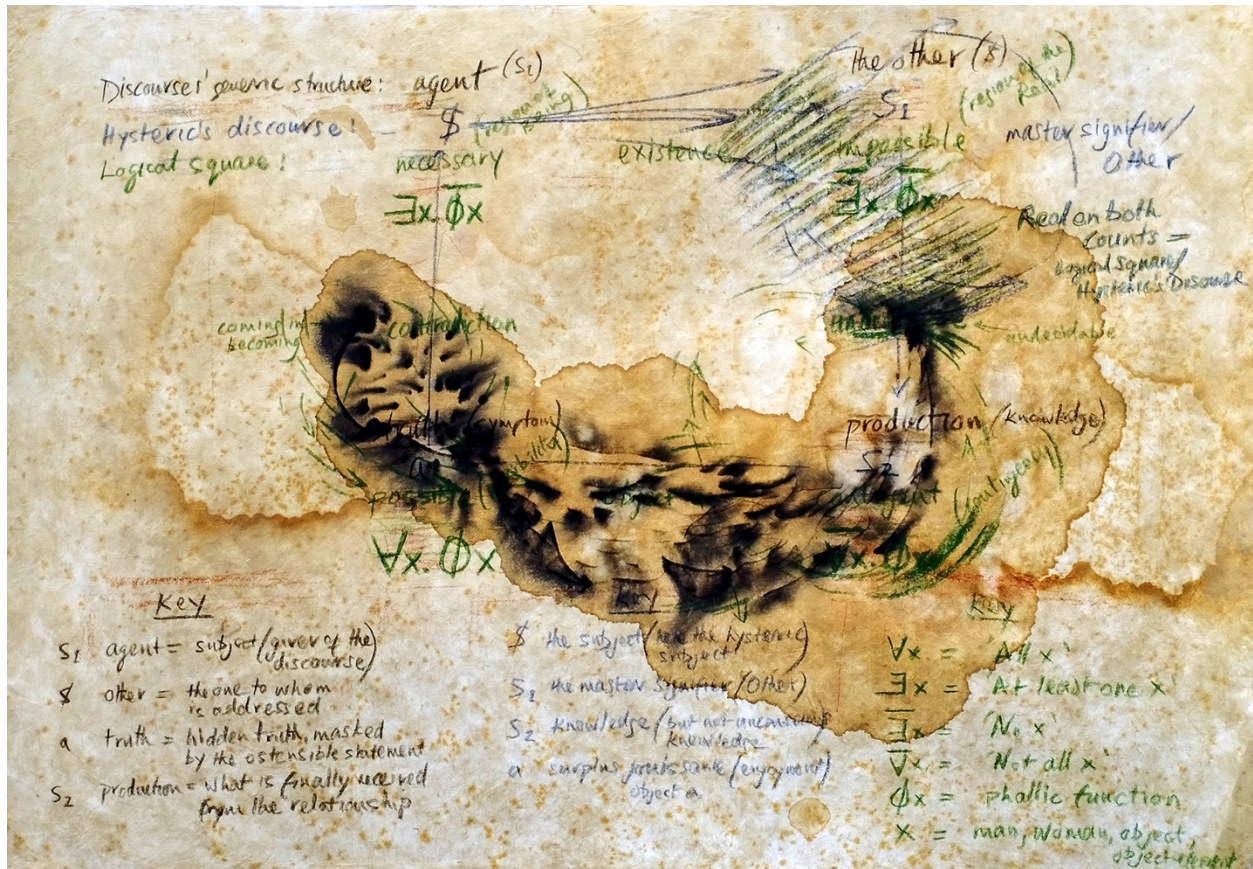 Discourses' generic structure: agent (S₁) the other ($)
Hysteric's discourse: $ S₁ master signifier/
Other
(region of being)
(region of the Real)
Logical square: necessary existence impossible
∃x.Φ̅x ∃̅x.Φ̅x
Real on both
counts =
logical square/
Hysteric's Discourse
coming in
becoming
contradiction
undecidable
truth (symptom) production (knowledge)
a S₂
possible object contingent
∀x.Φx ∀̅x.Φx
Key
S₁ agent = subject (giver of the
discourse)
$ other = the one to whom
is addressed
a truth = hidden truth, masked
by the ostensible statement
S₂ production = what is finally received
from the relationship
Key
$ the subject (here the hysteric
subject)
S₁ the master signifier/Other)
S₂ knowledge (but not unconscious
knowledge
a surplus jouissance (enjoyment)
object a
Key
∀x = 'All x'
∃x = 'At least one x'
∃̅x = 'No x'
∀̅x = 'Not all x'
Φx = phallic function
x = man, woman, object,
object-element